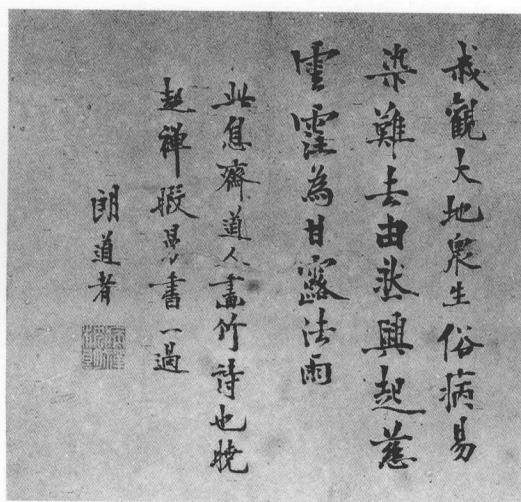 我觀大地衆生俗病易
染難去由興起慈
雲霔為甘露法雨
此息齋道人畫竹詩也
禪暇書一過
朗道者